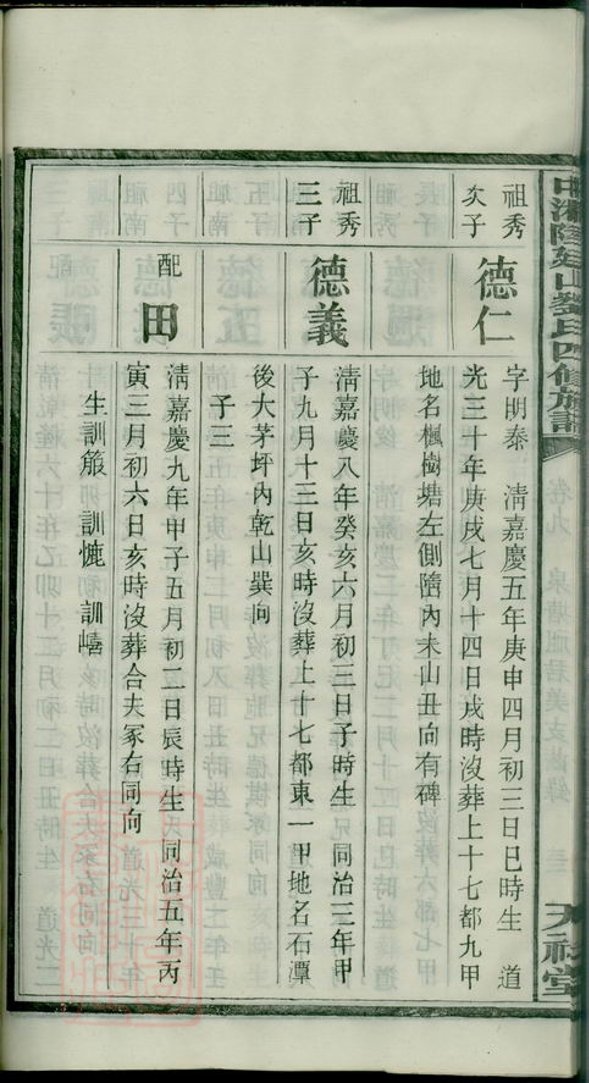 祖秀
次子
德仁
字明泰 淸嘉慶五年庚申四月初三日巳時生 道
光三十年庚戌七月十四日戌時沒葬上十七都九甲
地名楓樹塘左側墻內未山丑向有碑
祖秀
三子
德義
淸嘉慶八年癸亥六月初三日子時生 同治三年甲
子九月十三日亥時沒葬上十七都東一甲地名石潭
後大茅坪內乾山巽向
子三
配
田
淸嘉慶九年甲子五月初二日辰時生 同治五年丙
寅三月初六日亥時沒葬合夫冢右同向
生訓箙 訓 訓